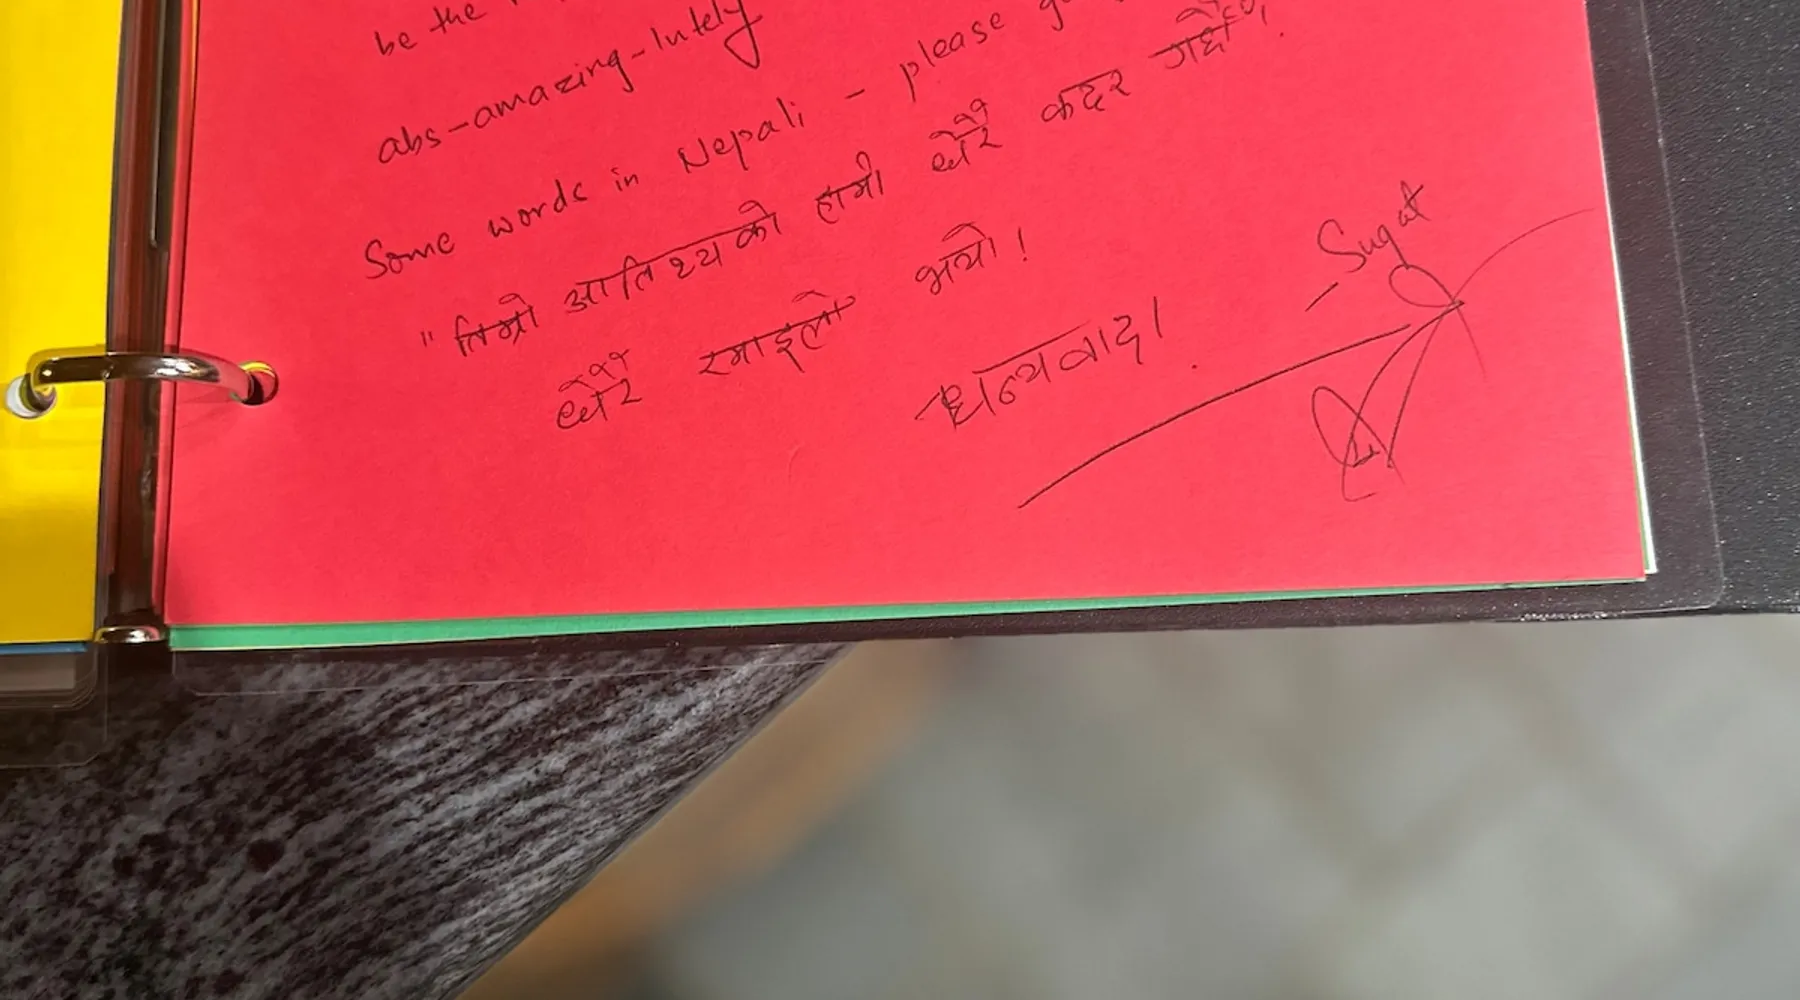 be the
abs-amazing-lutely
Some words in Nepali - please
"तिम्रो आतिथ्यको हामी धेरै कदर गर्छौं,
धेरै रमाइलो भयो!
धन्यवाद।
- Sugat